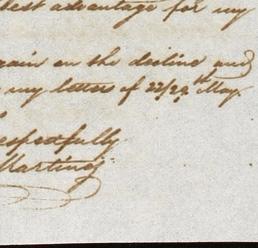 best advantage for my
again on the decline and
my letters of 22/29th May.
respectfully
Martinez